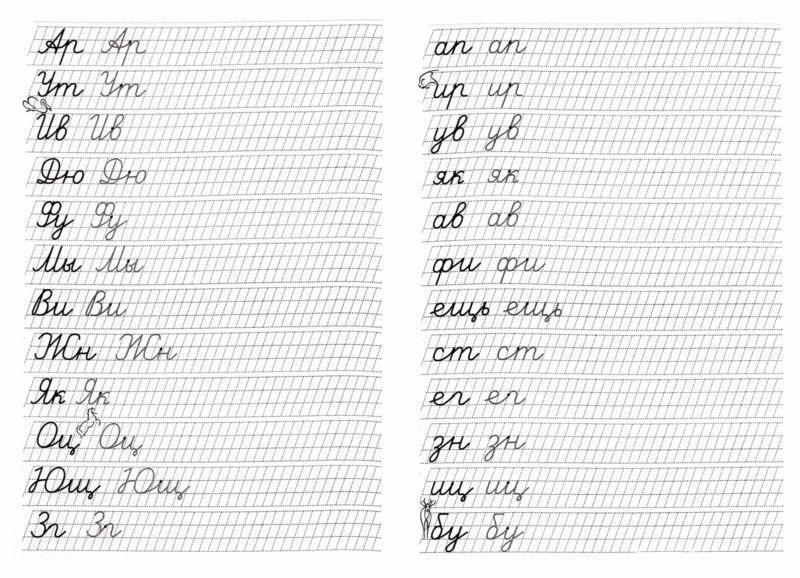 Ар Ар
Ут Ут
Ив Ив
Дю Дю
Фу Фу
Мы Мы
Ви Ви
Жн Жн
Як Як
Оц Оц
Ющ Ющ
Зг Зг
ап ап
ир ир
ув ув
як як
ав ав
фи фи
ещь ещь
ст ст
ег ег
зн зн
шц шц
бу бу